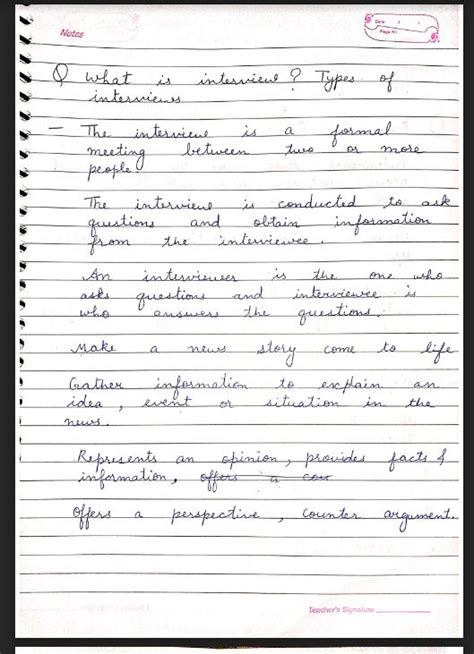 Notes
Date / /
Page No.
Q What is interview? Types of
interviews
- The interview is a formal
meeting between two or more
people.
The interview is conducted to ask
questions and obtain information
from the interviewee.
An interviewer is the one who
asks questions and interviewee is
who answers the questions.
Make a news story come to life
Gather information to explain an
idea, event or situation in the
news.
Represents an opinion, provides facts &
information, offers a cou
Offers a perspective, counter argument.
Teacher's Signature